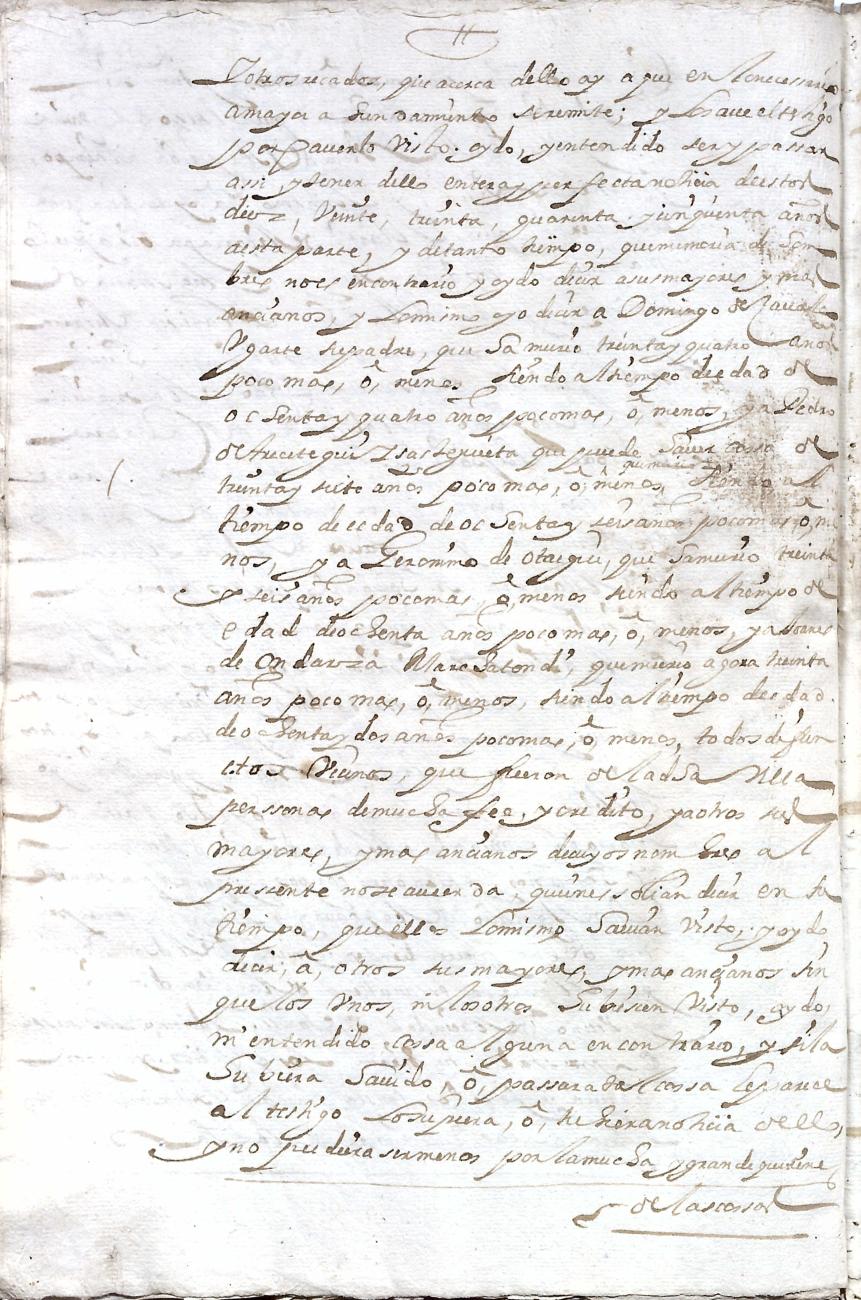 y otros recados, que acerca dello ay â que en lo necessario
a mayor a fundamento se remite; y lo save el testigo
por haverlo visto, oydo, y entendido ser y passar
assi, y tener dello entera y perfecta noticia de estos
diez, veinte, treinta, quarenta, y cinquenta años
a esta parte, y de tanto tiempo, que memoria de hom
bres no es en contrario y oydo deçir a sus mayores y mas
ançianos, y lo mismo oyo deçir a Domingo de
Ugarte su padre, que ha murio treinta y quatro años
poco mas, ô, menos siendo al tiempo de edad de
ochenta y quatro años poco mas, ô, menos, y a Pedro
de que puede haver cossa de
treinta y siete años poco mas, ô, menos, que murio siendo al
tiempo de edad de ochenta y seis años poco mas, ô, me
nos, y a Geronimo de Otaegui, que ha murio treinta
y seis años poco mas, ô, menos siendo al tiempo de
edad de ochenta años poco mas, ô, menos, y a
de Ondarza que murio agora treinta
años poco mas, ô, menos, siendo al tiempo de edad
de ochenta y dos años poco mas, ô, menos, todos defun
ctos veçinos, que fueron de la dha villa
perssonas de mucha fee, y credito, y a otros sus
mayores, y mas ançianos de cuyos nombres al
pressente no se acuerda quienes solian deçir en su
tiempo, que ellos lo mismo havian visto, y oydo
deçir, â, otros sus mayores, y mas ançianos sin
que los unos, ni los otros hubiesen visto, oydo,
ni entendido cossa alguna en contrario, y si la
hubiera havido, ô, passara tal cossa le pareçe
al testigo lo supiera, ô, tubiera notiçia dello,
y no pudiera ser menos por la mucha, y grande que tiene
de las cossas